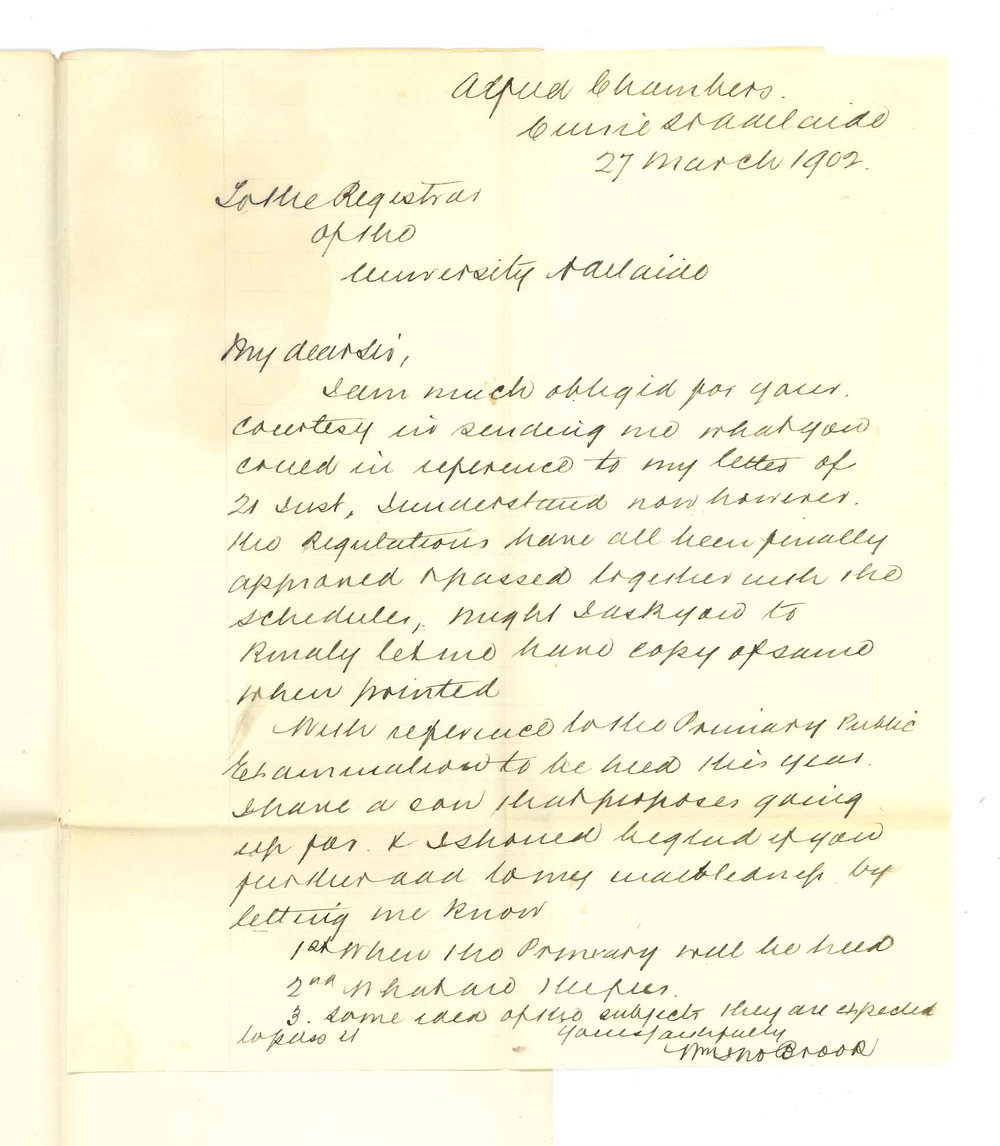 Alfred Chambers.
Currie St Adelaide
27 March 1902.
To the Registrar
of the
University Adelaide
My dear Sir,
I am much obliged for your
courtesy in sending me what you
could in reference to my letter of
21 Inst, I understand now however
the Regulations have all been finally
approved & passed together with the
schedules, might I ask you to
kindly let me have copy of same
when printed
With reference to the Primary Public
Examination to be held this year.
I have a son that proposes going
up for. & I should be glad if you
further add to my indebtedness by
letting me know
1st When the Primary will be held
2nd What are the fees.
3. Some idea of the subjects they are expected
to pass it
yours faithfully
Wm Jno Brook